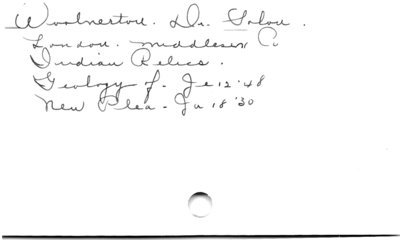 Woolverton. Dr. Solon.
London. Middlesex Co
Indian Relics.
Geology of. Je 12 '48
New Plea - Ja 18 '30